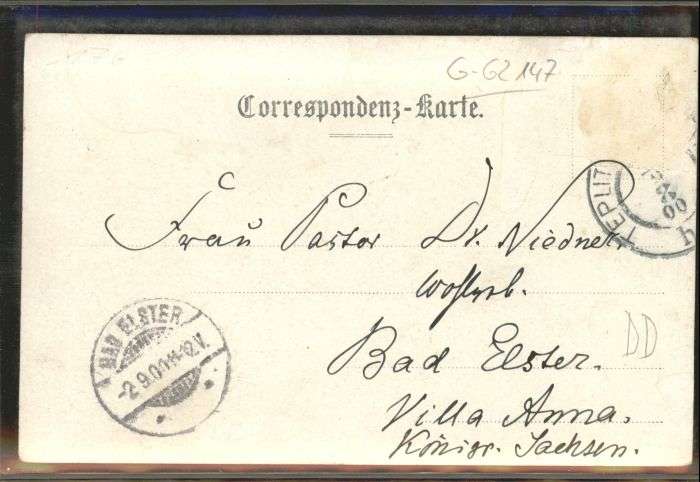 G-G2 147
Correspondenz-Karte.
TEPLITZ
00
Frau Pastor Dr. Niedner.
Wohlgeb.
BAD ELSTER
-2.9.0
V.
Bad Elster.
DD
Villa Anna.
Königr. Sachsen.